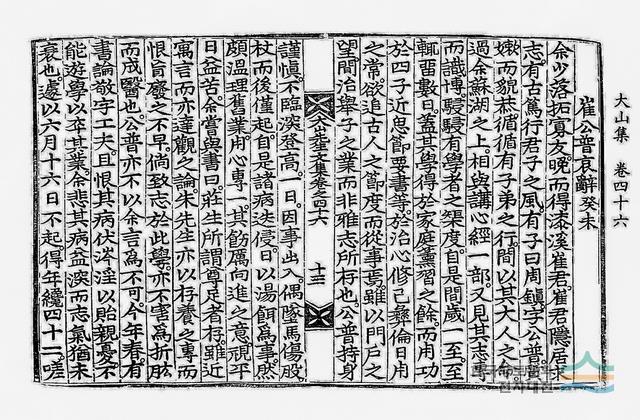 大山集 卷四十六
崔公普哀辭 癸未
余少落拓寡友。晩而得漆溪崔君。崔君隱居求
志。有古篤行君子之風。有子曰周鎭。字公普。
嫩而貌恭。循循有子弟之行。間以其大人之命
過余蘇湖之上。相與講心經一部。又見其志專
而識博。駸駸有學者之榘度。自是間歲一至。至
輒留數日。蓋其學得於家庭薰習之餘。而用功
於四子近思節要書等。於治心修己彝倫日用
之常。欲追古人之節度而從事焉。雖以門戶之
望。間治擧子之業。而非雅志所存也。公普持身
大山先生文集卷之四十六 十三
謹愼。不臨深登高。一日。因事出入。偶墜馬傷股。
杖而後僅起。自是諸病迭侵。日以湯餌爲事。然
頗溫理舊業。用心專一。其飭厲向進之意。視平
日益苦。余嘗與書曰。莊生所謂尊足者存。雖近
寓言。而亦達觀之論。朱先生亦以存養之專而
恨盲廢之不早。倘致志於此學。亦不害爲折肱
而成醫也。公普亦不以余言爲不可。今年春。有
書論敬字工夫。且恨其病伏涔淫。以貽親憂。不
能遊學以卒其業。余悲其病益深而志氣猶未
衰也。遽以六月十六日不起。得年纔四十二。嗟